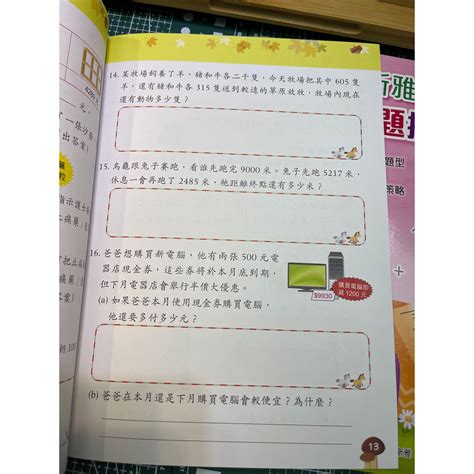 14. 某牧場飼養了羊、豬和牛各二千隻，今天牧場把其中 605 隻
羊、還有豬和牛各 315 隻送到較遠的草原放牧，牧場內現在
還有動物多少隻？
15. 烏龜跟兔子賽跑，看誰先跑完 9000 米。兔子先跑 5217 米，
休息一會再跑了 2485 米，牠距離終點還有多少米？
16. 爸爸想購買新電腦，他有兩張 500 元電
器店現金券，這些券將於本月底到期，
但下月電器店會舉行半價大優惠。
$9930
購買電腦即
減 1200 元
(a) 如果爸爸本月使用現金券購買電腦，
他還要多付多少元？
(b) 爸爸在本月還是下月購買電腦會較便宜？為什麼？
13
元。
了一張沙發，
出答案)
指示護士
二病
了把止病
案)
新雅
題
題型
策略